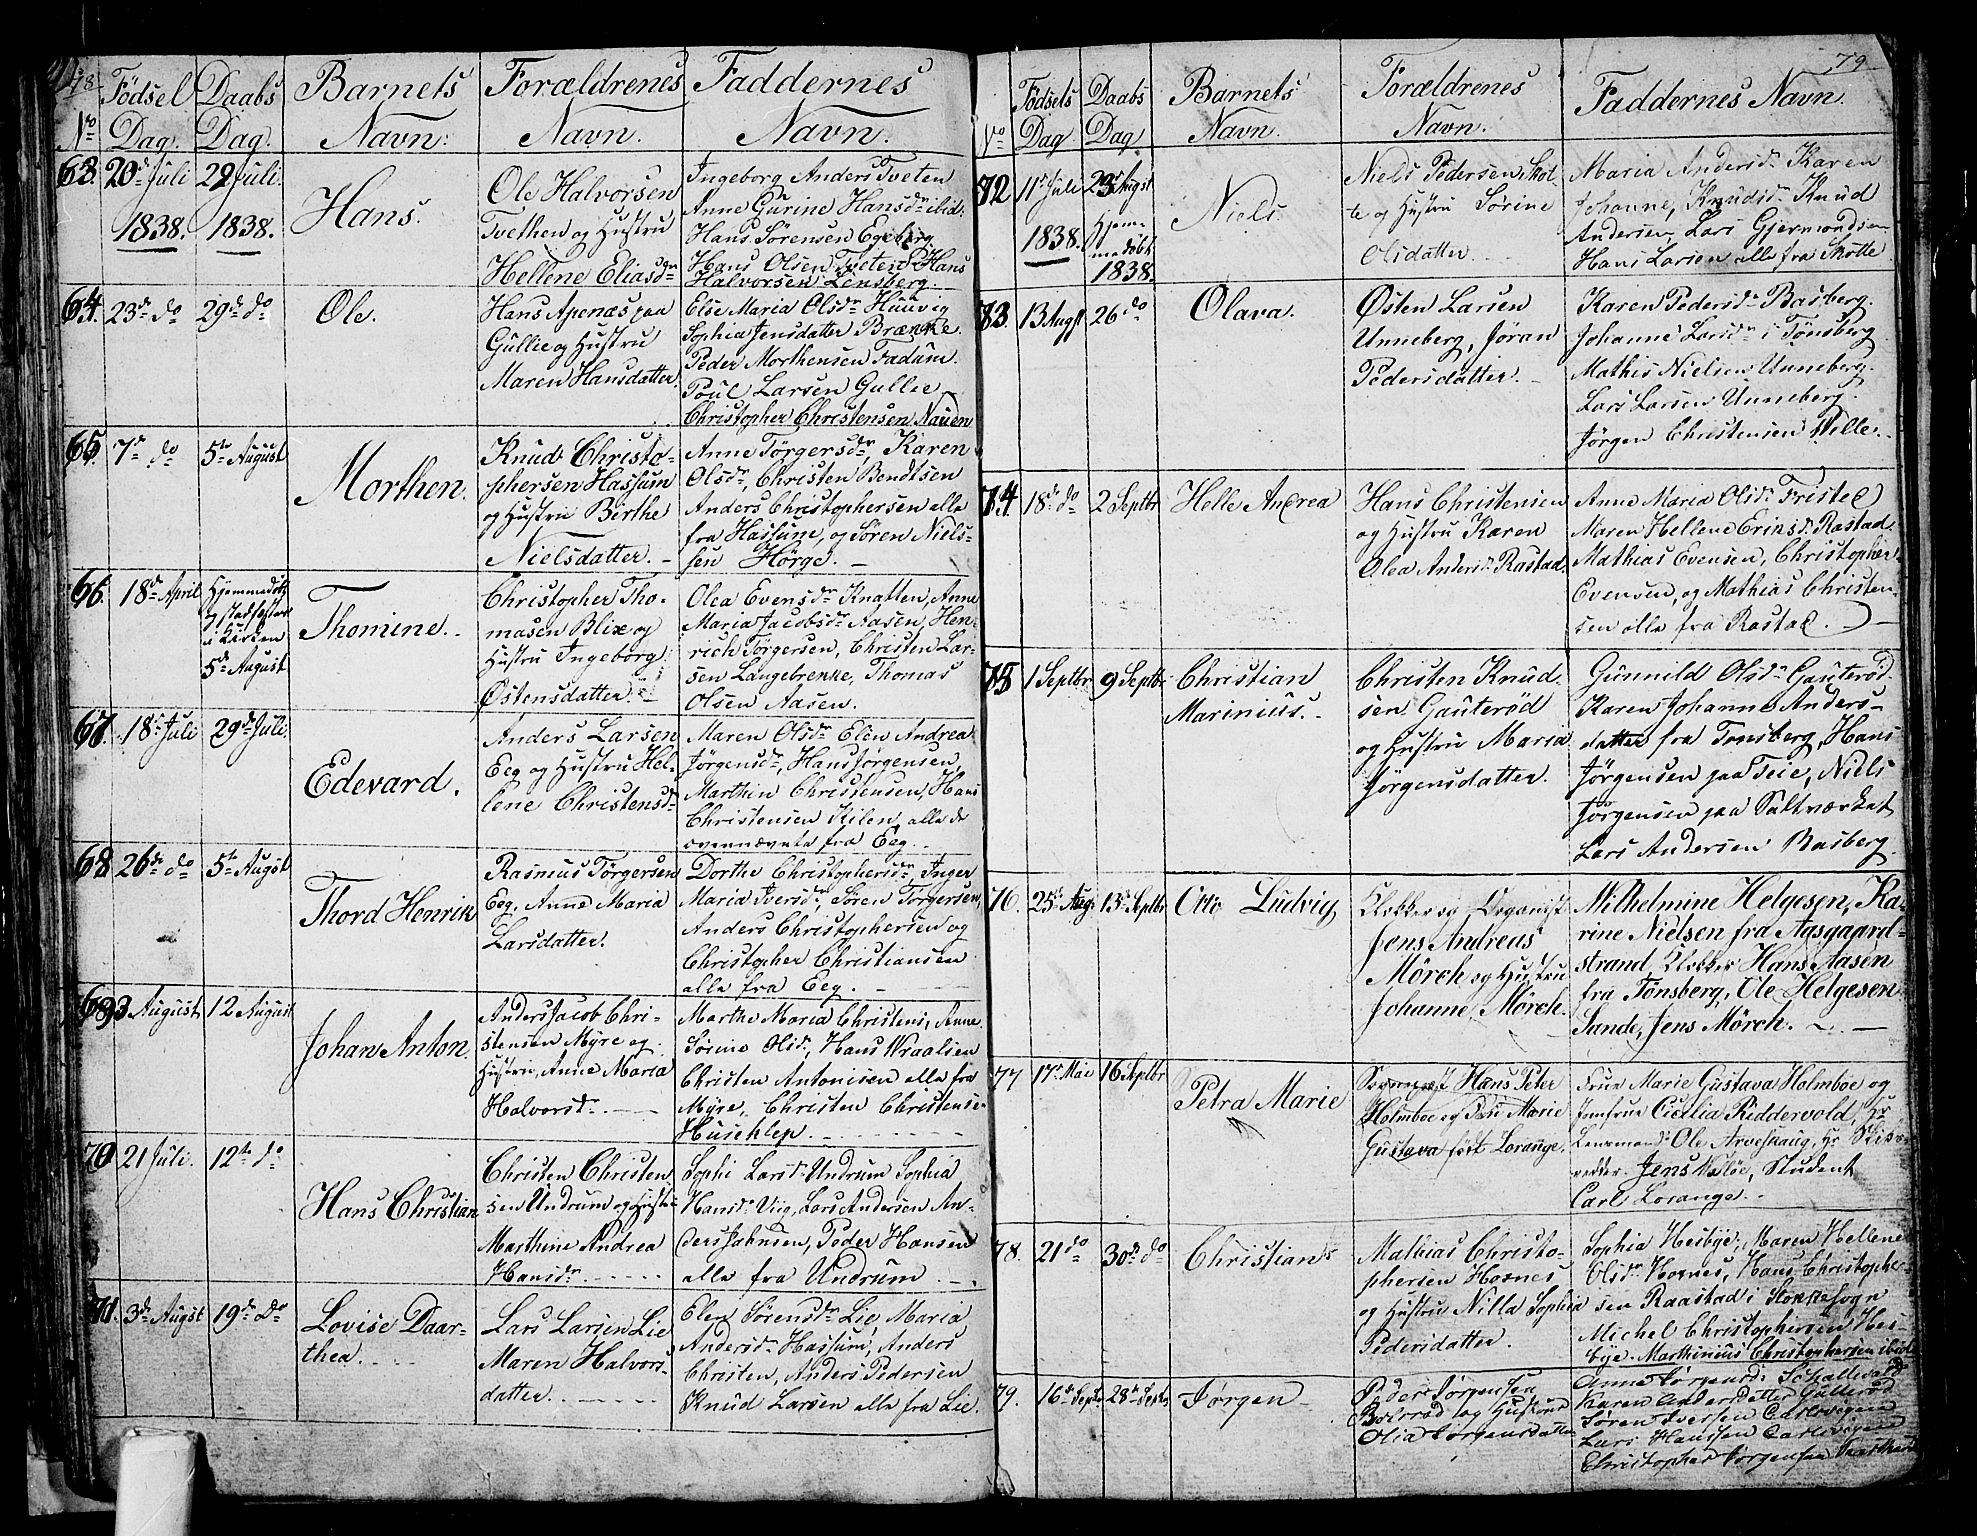 78
Fødsel Daabs Barnets Forældrenes Faddernes
No Dag. Dag. Navn: Navn. Navn.
63. 20d Juli 22 Juli.
1838. 1838.
Hans.
Ole Halvorsen
Tvethen og Hustru
Hellene Eliasdr
Ingeborg Anders Tveten
Anne Gurine Hansdr ibid.
Hans Sørensen Egeberg.
Hans Olsen Tveten Hans
Halvorsen Lensberg.
64. 23d do 29d do
Ole.
Hans Apenæs paa
Gullie og Hustru
Maren Hansdatter.
Else Maria Olsdr Huuvig
Sophia Jensdatter Brænke
Peder Morthensen Fadum.
Poul Larsen Gullie
Christopher Christensen Nauen
65. 7d do 5te August
Morthen.
Knud Christo-
phersen Hassum
og Hustru Birthe
Nielsdatter. -
Anne Tørgersdr, Karen
Olsdr, Christen Bendtsen
Anders Christophersen alle
fra Hassum, og Søren Niels-
sen Hørge. -
66. 18d April Hjemmedøbt
og stadfæstet
i Kirken
5d August
Thomine.
Christopher Tho-
masen Blix og
Hustru Ingeborg
Østensdatter. -
Olea Evensdr Knatten, Anne
Maria Jacobsdr Aasen, Hen-
rich Tørgersen, Christen Lar-
sen Langebrenke, Thomas
Olsen Aasen.
67. 18d Juli 29d Juli.
Edevard.
Anders Larsen
Eeg og Hustru Hel-
lene Christensdr
Maren Olsdr Elen Andrea
Jørgensdr, Hans Jørgensen,
Marthin Christensen, Hans
Christensen Kilen, alle de
ovennævnte fra Eeg.
68 26de do 5te August
Thord Henrik
Rasmus Tørgersen
Eeg, Anne Maria
Larsdatter.
Dorthe Christophersdr, Inger
Maria Iversdr, Søren Tørgersen,
Anders Christophersen og
Christopher Christiansen
alle fra Eeg.
69 3 August 12 August
Johan Anton.
Anders Jacob Chri-
stensen Myre og
Hustru, Anne Maria
Halvorsdr
Marthe Maria Christens, Anne
Sørine Olsdr, Hans Wraalsen
Christen Antonisen alle fra
Myre, Christen Christense
Huseklep.
70 21 Juli. 12te do
Hans Christian
Christen Christen
sen Undrum og Hustru
Marthine Andrea
Hansdr
Sophi Larsd. Undrum Sophia
Hansdr Viig, Lars Andersen An-
ders Johnsen, Peder Hansen
alle fra Undrum.
71. 3d August 19d do
Lovise Daar-
thea.
Lars Larsen Lie
Maren Halvors
datter.
Elen Sørensdr Lie Maria
Andersdr Hassum, Anders
Christen, Anders Pedersen
Knud Larsen alle fra Lie.
79
Fødsels Daabs Barnets Forældrenes Faddernes Navn.
No Dag. Dag. Navn. Navn.
72 11d Juli 23d Augst
1838. Hjem-
medøbt
1838.
Niels.
Niels Pedersen Skot-
te og Hustru Sørine
Olsdatter.
Maria Andersdr Karen
Johanne, Knudsdr Knud
Andersen, Lars Gjermondsen
Hans Larsen alle fra Skotte
73. 13 Augst 26 do
Olava.
Østen Larsen
Unneberg, Jøran
Pedersdatter.
Karen Pedersdr Basberg.
Johanne Larsdr i Tønsberg
Mathis Nielsen Unneberg.
Lars Larsen Unneberg.
Jørgen Christensen Wille.
74. 18d do 2 Septbr
Helle Andrea
Hans Christensen
og Hustru Karen
Olea Andersd. Rastad.
Anne Maria Olsdr Fristed
Maren Hellene Eriksdr Rastad
Mathias Evensen, Christopher
Evensen, og Mathias Christen-
sen alle fra Rastad.
75 1 Septbr 9 Septbr
Christian
Marinius.
Christen Knud-
sen Gauterød
og Hustru Maria
Jørgensdatter.
Gunnild Olsdr Gauterød.
Karen Johanne Anders-
datter fra Tønsberg, Hans
Jørgensen paa Teie, Niels
Jørgensen paa Saltværket
Lars Andersen Basberg.
76. 25d Augs 13d Septbr
Otto Ludvig
Klokker og Organist
Jens Andreas
Mörch og Hustru
Johanne Mörch.
Wilhelmine Helgesen, Ka-
rine Nielsen fra Aasgaard-
strand, Klokker Hans Aasen
fra Tønsberg, Ole Helgesen
Sande, Jens Mörch.
77 17d Mai 16 Septbr
Petra Marie
Hans Peter
Holmboe og Marie
Gustava født Lorange.
Frue Marie Gustava Holmboe og
Jomfrue Cicilia Riddervold, Hr
Lensmand Ole Arveshaug, Hr
Jens Student
Carl Lorange.
78. 21 do 30te do
Christian
Mathias Christo-
phersen Hosnes
og Hustru Nilla Sophia
Pedersdatter.
Sophia Hesbye, Maren Hellene
Olsdr Hosnes, Hans Christopher-
sen Raastad i Stokke Sogn
Michel Christophersen Hes-
bye. Marthinius Christophersen ibid
79. 16d Septb 28d Septb
Jørgen
Peder Jørgensen
og Hustrue
Olia Jørgensdatter
Anne Jørgensd. Schallevold
Karen Andersdatter Gullerød
Søren Iversen Carlsvigen
Lars Hanssen Carlsvigen
Christopher Jørgensen